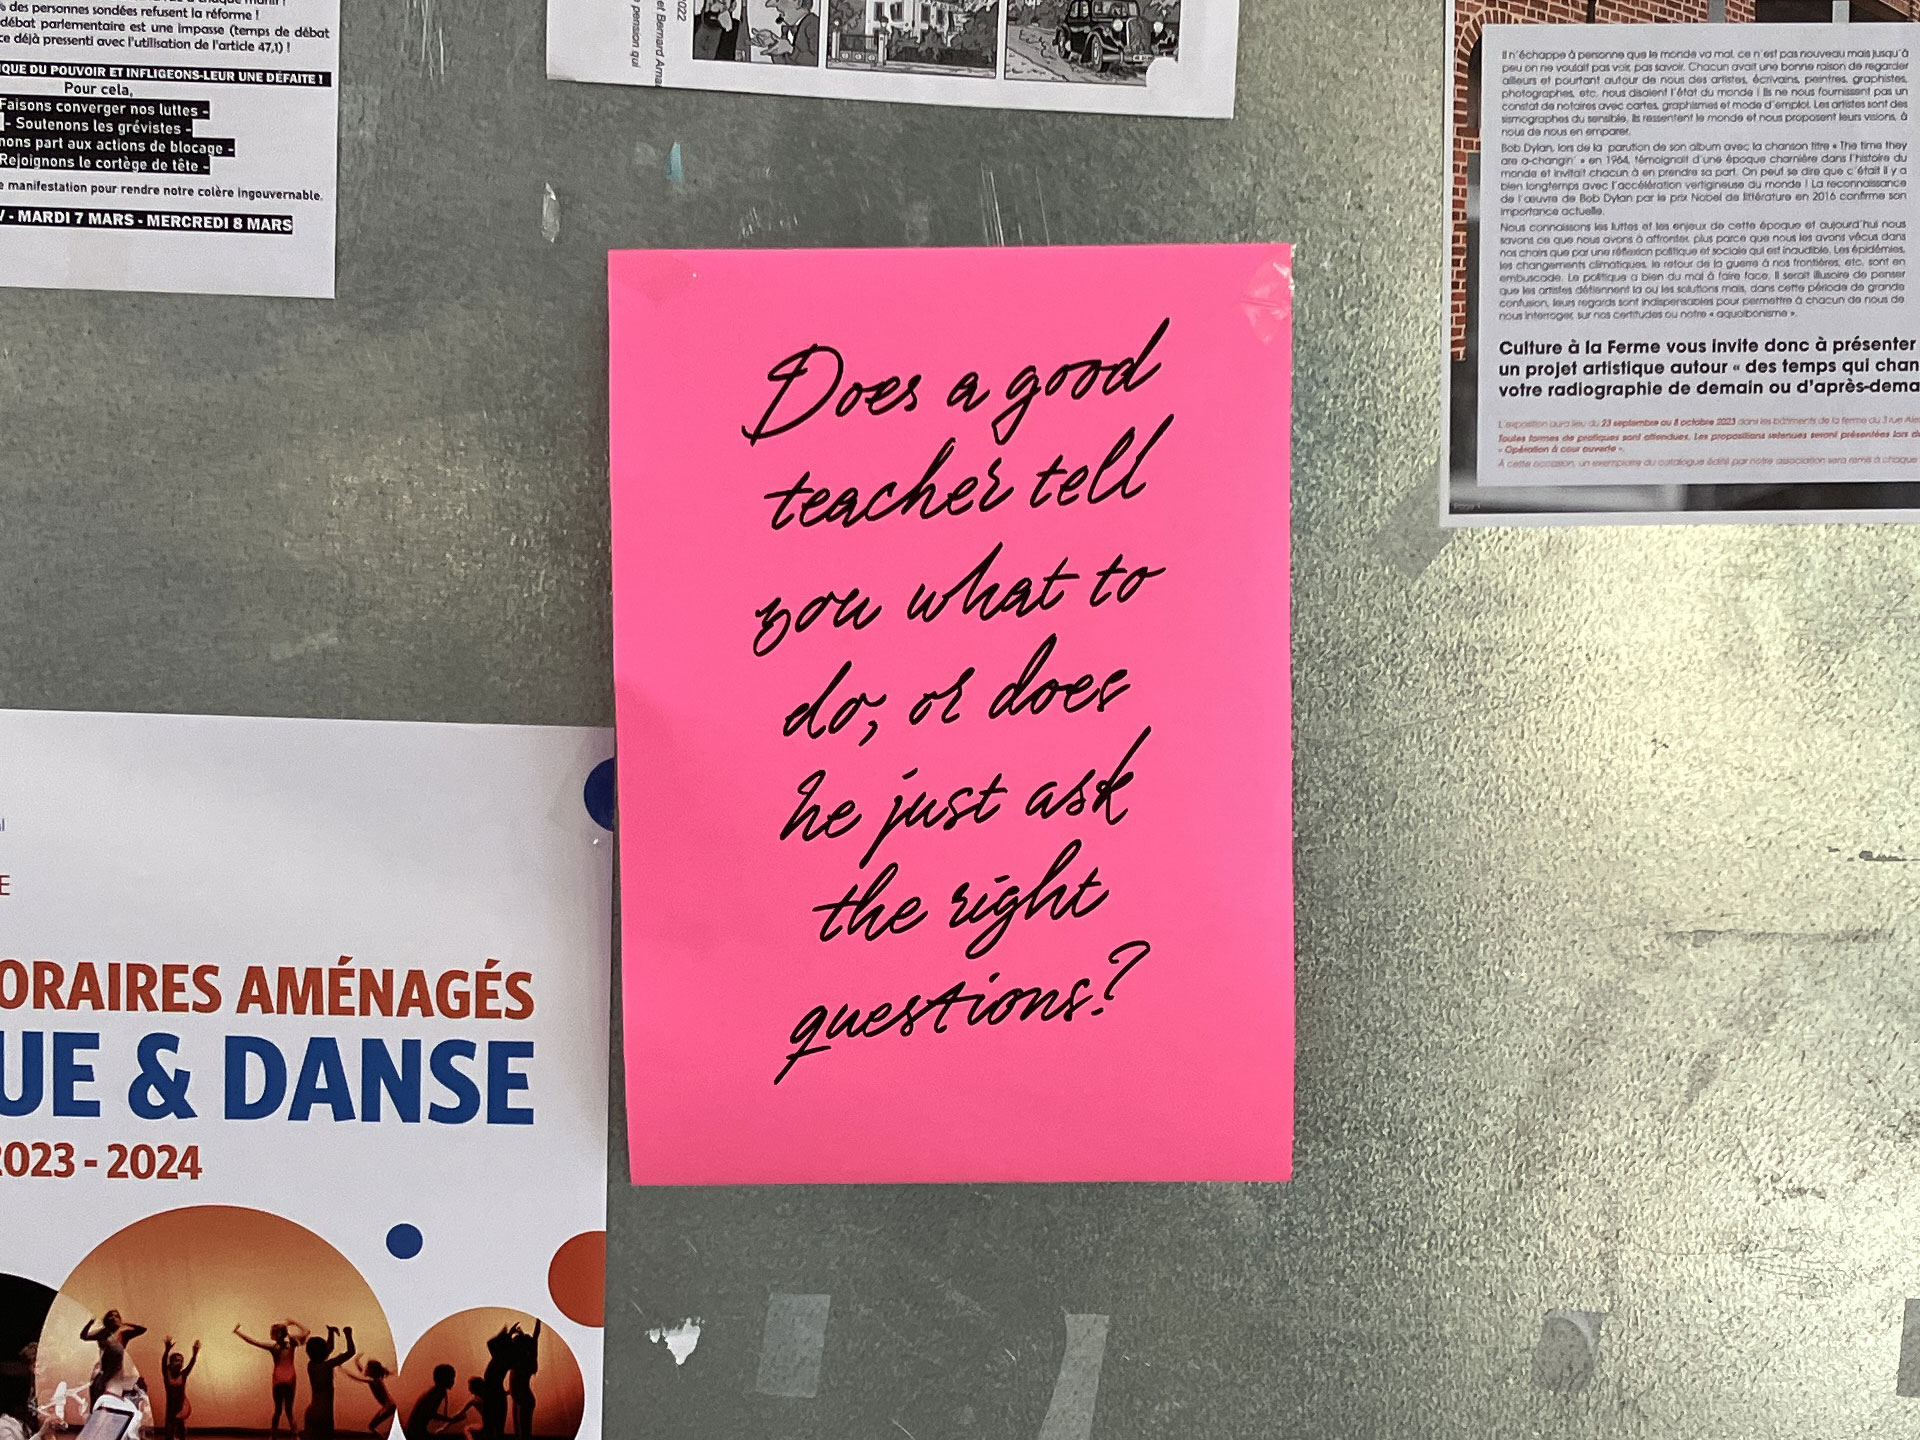 des personnes sondées refusent la réforme !
débat parlementaire est une impasse (temps de débat
ce déjà pressenti avec l'utilisation de l'article 47,1) !
QUE DU POUVOIR ET INFLIGEONS-LEUR UNE DÉFAITE !
Pour cela,
Faisons converger nos luttes -
- Soutenons les grévistes -
nons part aux actions de blocage -
Rejoignons le cortège de tête -
e manifestation pour rendre notre colère ingouvernable.
V - MARDI 7 MARS - MERCREDI 8 MARS
2022
et Bernard Arna
pension qui
Il n'échappe à personne que le monde va mal, ce n'est pas nouveau mais jusqu'à
peu on ne voulait pas voir, pas savoir. Chacun avait une bonne raison de regarder
ailleurs et pourtant autour de nous des artistes, écrivains, peintres, graphistes,
photographes, etc. nous disaient l'état du monde ! Ils ne nous fournissent pas un
constat de notaires avec cartes, graphismes et mode d'emploi. Les artistes sont des
sismographes du sensible, ils ressentent le monde et nous proposent leurs visions, à
nous de nous en emparer.
Bob Dylan, lors de la parution de son album avec la chanson titre « The time they
are a-changin' » en 1964, témoignait d'une époque charnière dans l'histoire du
monde et invitait chacun à en prendre sa part. On peut se dire que c'était il y a
bien longtemps avec l'accélération vertigineuse du monde ! La reconnaissance
de l'œuvre de Bob Dylan par le prix Nobel de littérature en 2016 confirme son
importance actuelle.
Nous connaissons les luttes et les enjeux de cette époque et aujourd'hui nous
savons ce que nous avons à affronter, plus parce que nous les avons vécus dans
nos chairs que par une réflexion politique et sociale qui est inaudible. Les épidémies,
les changements climatiques, le retour de la guerre à nos frontières, etc. sont en
embuscade. Le politique a bien du mal à faire face. Il serait illusoire de penser
que les artistes détiennent la ou les solutions mais, dans cette période de grande
confusion, leurs regards sont indispensables pour permettre à chacun de nous de
nous interroger, sur nos certitudes ou notre « aquoibonisme ».
Culture à la Ferme vous invite donc à présenter
un projet artistique autour « des temps qui chan
votre radiographie de demain ou d'après-dema
L'exposition aura lieu du 23 septembre au 8 octobre 2023 dans les bâtiments de la ferme du 3 rue
Toutes formes de pratiques sont attendues. Les propositions retenues seront présentées lors
« Opération à cœur ouverte ».
À cette occasion, un exemplaire du catalogue édité par notre association sera remis à chaque
Does a good
teacher tell
you what to
do, or does
he just ask
the right
questions?
E
ORAIRES AMÉNAGÉS
UE & DANSE
2023 - 2024